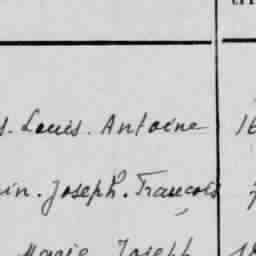 s. Louis. Antoine 16
in. Joseph. Francois 7
Marie Joseph